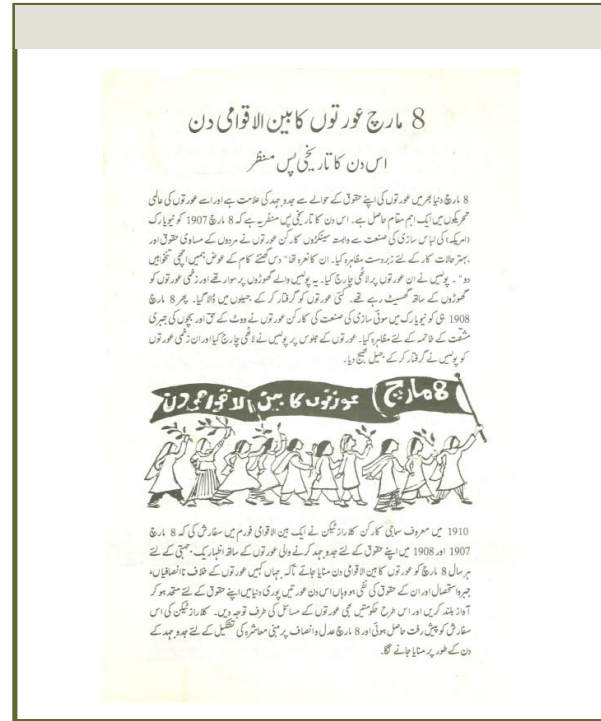 8 مارچ عورتوں کا بین الاقوامی دن
اس دن کا تاریخی پس منظر
8 مارچ دنیا بھر میں عورتوں کی اپنے حقوق کے حوالے سے جدوجہد کی علامت ہے اور اسے عورتوں کی عالمی
تحریکوں میں ایک اہم مقام حاصل ہے۔ اس دن کا تاریخی پس منظر یہ ہے کہ 8 مارچ 1907 کو نیویارک
(امریکہ) کی لباس سازی کی صنعت سے وابستہ سینکڑوں کارکن عورتوں نے مردوں کے مساوی حقوق اور
بہتر حالات کار کے لئے زبردست مظاہرہ کیا۔ ان کا نعرہ تھا "دس گھنٹے کام کے عوض ہمیں اچھی تنخواہیں
دو"۔ پولیس نے ان عورتوں پر لاٹھی چارج کیا۔ یہ پولیس والے گھوڑوں پر سوار تھے اور زخمی عورتوں کو
گھوڑوں کے ساتھ گھسیٹ رہے تھے۔ کئی عورتوں کو گرفتار کر کے جیلوں میں ڈالا گیا۔ پھر 8 مارچ
1908 ہی کو نیویارک میں سوئی سازی کی صنعت کی کارکن عورتوں نے ووٹ کے حق اور بچوں کی جبری
مشقت کے خاتمہ کے لئے مظاہرہ کیا۔ عورتوں کے جلوس پر پولیس نے لاٹھی چارج کیا اور ان زخمی عورتوں
کو پولیس نے گرفتار کر کے جیل بھیج دیا۔
8 مارچ عورتوں کا بین الاقوامی دن
1910 میں معروف سماجی کارکن کلارازٹیکن نے ایک بین الاقوامی فورم میں سفارش کی کہ 8 مارچ
1907 اور 1908 میں اپنے حقوق کے لئے جدوجہد کرنے والی عورتوں کے ساتھ اظہار یک جہتی کے لئے
ہر سال 8 مارچ کو عورتوں کا بین الاقوامی دن منایا جائے تاکہ جہاں کہیں عورتوں کے خلاف ناانصافیاں،
جبر واستحصال اور ان کے حقوق کی نفی ہو وہاں اس دن عورتیں پوری دنیا میں اپنے حقوق کے لئے متحد ہو کر
آواز بلند کریں اور اس طرح حکومتیں بھی عورتوں کے مسائل کی طرف توجہ دیں۔ کلارازٹیکن کی اس
سفارش کو پیش رفت حاصل ہوئی اور 8 مارچ عدل وانصاف پر مبنی معاشرہ کی تشکیل کے لئے جدوجہد کے
دن کے طور پر منایا جانے لگا۔